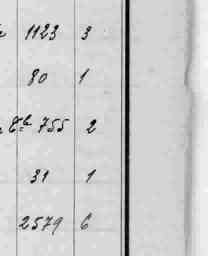 1123 3
80 1
755 2
31 1
2579 6